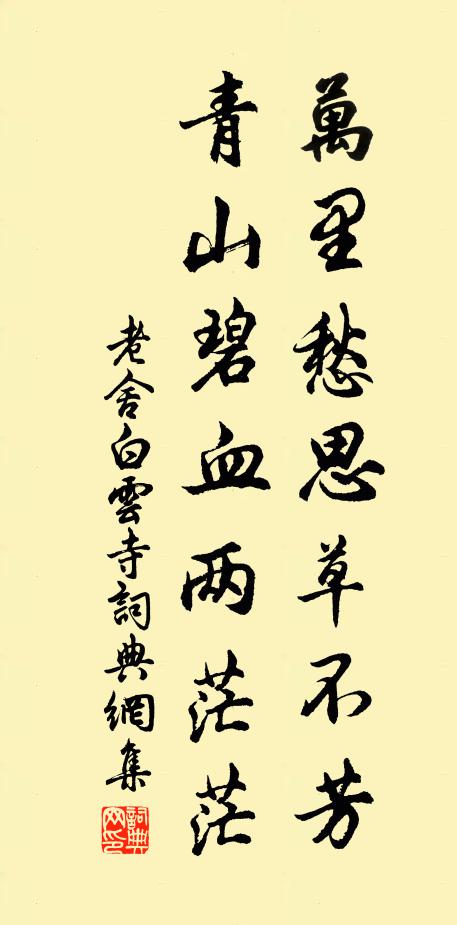 萬里愁思草不芳
青山碧血兩茫茫
老舍白雲寺詞典網集
詞典網印